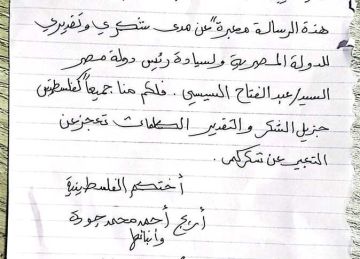 هذه الرسالة معبرة عن مدى شكري وتقديري
للدولة المصرية ولسيادة رئيس دولة مصر
السيد/عبد الفتاح السيسي . فلكم منا جميعاً كفلسطين
جزيل الشكر والتقدير الكلمات تعجز عن
التعبير عن شكركم.
أختكم الفلسطينية
أريج أحمد محمد جودة
وأبنائها